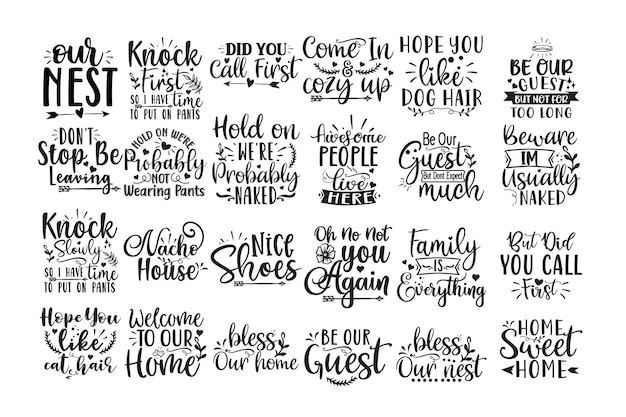 our
NEST
Knock
First
SO I HAVE time
TO PUT ON PANTS
DID YOU
Call First
Come In
&
cozy up
HOPE YOU
like
DOG HAIR
BE OUR
GUEST
BUT NOT FOR
TOO LONG
DON'T
Stop. Bep
Leaving
HOLD ON WE'RE
Probably
NOT
Wearing Pants
Hold on
WE'RE
Probably
NAKED
Awesome
PEOPLE
live
HERE
Be Our
Guest
But Dont Expect
much
Beware
IM
Usually
NAKED
Knock
Slowly
SO I HAVE time
TO PUT ON PANTS
Nacho
House
Nice
Shoes
Oh No Not
you
Again
Family
IS
Everything
But Did
YOU CALL
First
Hope You
like
cat hair
Welcome
TO OUR
Home
bless
Our home
BE OUR
Guest
bless
Our nest
HOME
Sweet
HOME